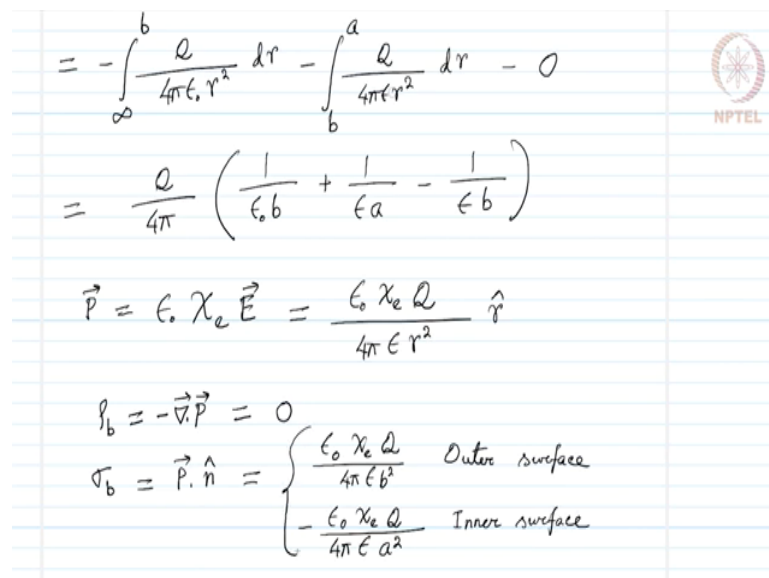 = - ∫_∞^b Q/(4πϵ₀r²) dr - ∫_b^a Q/(4πϵr²) dr - 0
NPTEL
= Q/4π ( 1/(ϵ₀b) + 1/(ϵa) - 1/(ϵb) )
P⃗ = ϵ₀ χₑ E⃗ = (ϵ₀ χₑ Q)/(4π ϵ r²) r̂
ρ_b = -∇⃗.P⃗ = 0
σ_b = P⃗.n̂ = { (ϵ₀ χₑ Q)/(4π ϵ b²) Outer surface
- (ϵ₀ χₑ Q)/(4π ϵ a²) Inner surface